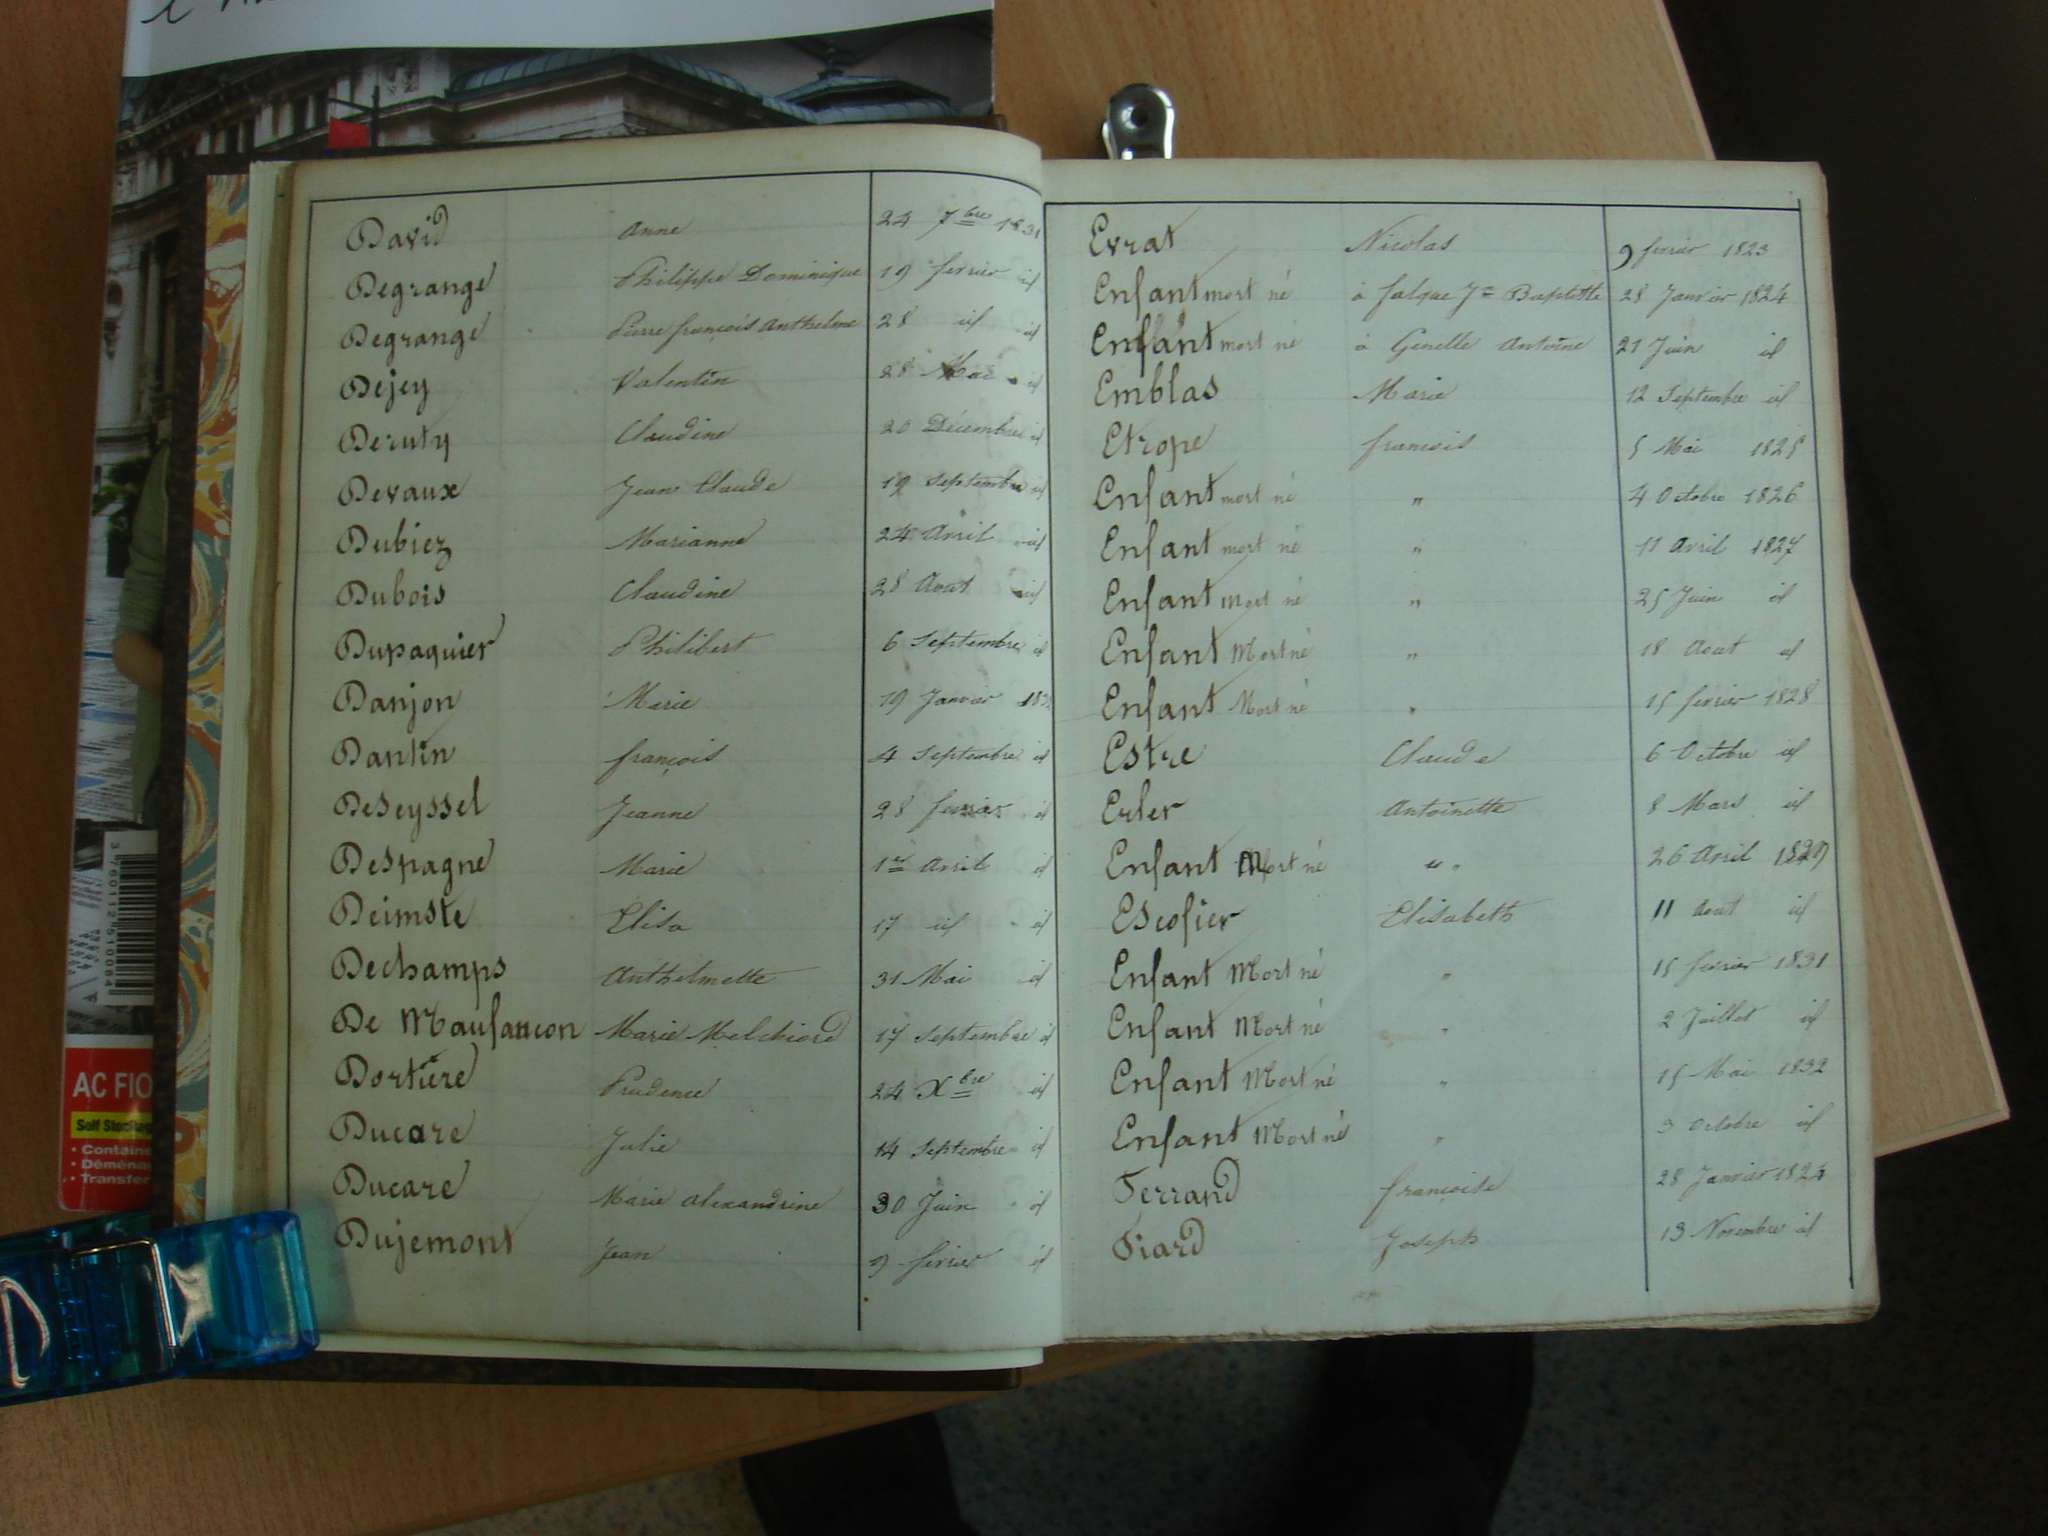 David Anne 24 7bre 1831
Degrange Philippe Dominique 19 fevrier id
Degrange Pierre françois Anthelme 28 id id
Dejey Valentin 28 Mai id
Deruty Claudine 20 Décembre id
Devaux Jean Claude 19 Septembre id
Dubiez Marianne 24 Avril id
Dubois Claudine 28 Aout id
Dupaquier Philibert 6 Septembre id
Danjon Marie 19 Janvier
Dantin françois 4 Septembre id
DeSeyssel Jeanne 28 fevrier id
Despagne Marie 1er Avril id
Deimste Elisa 17 id id
Dechamps Anthelmette 31 Mai id
De Maufancon Marie Melchiord 17 Septembre id
Dortière Prudence 24 Xbre id
Ducare Julie 14 Septembre id
Ducare Marie Alexandrine 30 Juin id
Dujemont Jean 9 fevrier id
Evrat Nicolas 9 fevrier 1823
Enfant mort né à falque Jn Baptiste 28 Janvier 1824
Enfant mort né à Genelle Antoine 21 Juin id
Emblas Marie 12 Septembre id
Etrope francois 5 Mai 1825
Enfant mort né " 4 Octobre 1826
Enfant mort né " 11 Avril 1827
Enfant Mort né " 25 Juin id
Enfant Mort né " 18 Aout id
Enfant Mort né " 15 fevrier 1828
Estre Claude 6 Octobre id
Erler Antoinette 8 Mars id
Enfant Mort né " 26 Avril 1829
Escofier Elisabeth 11 Aout id
Enfant Mort né " 15 fevrier 1831
Enfant Mort né " 2 Juillet id
Enfant Mort né " 15 Mai 1832
Enfant Mort né " 3 Octobre id
Ferrand francoise 28 Janvier 1824
Fiard Joseph 13 Novembre id
AC FIO
Self Stockag
• Containe
• Déména
• Transfer
3 760112 510084